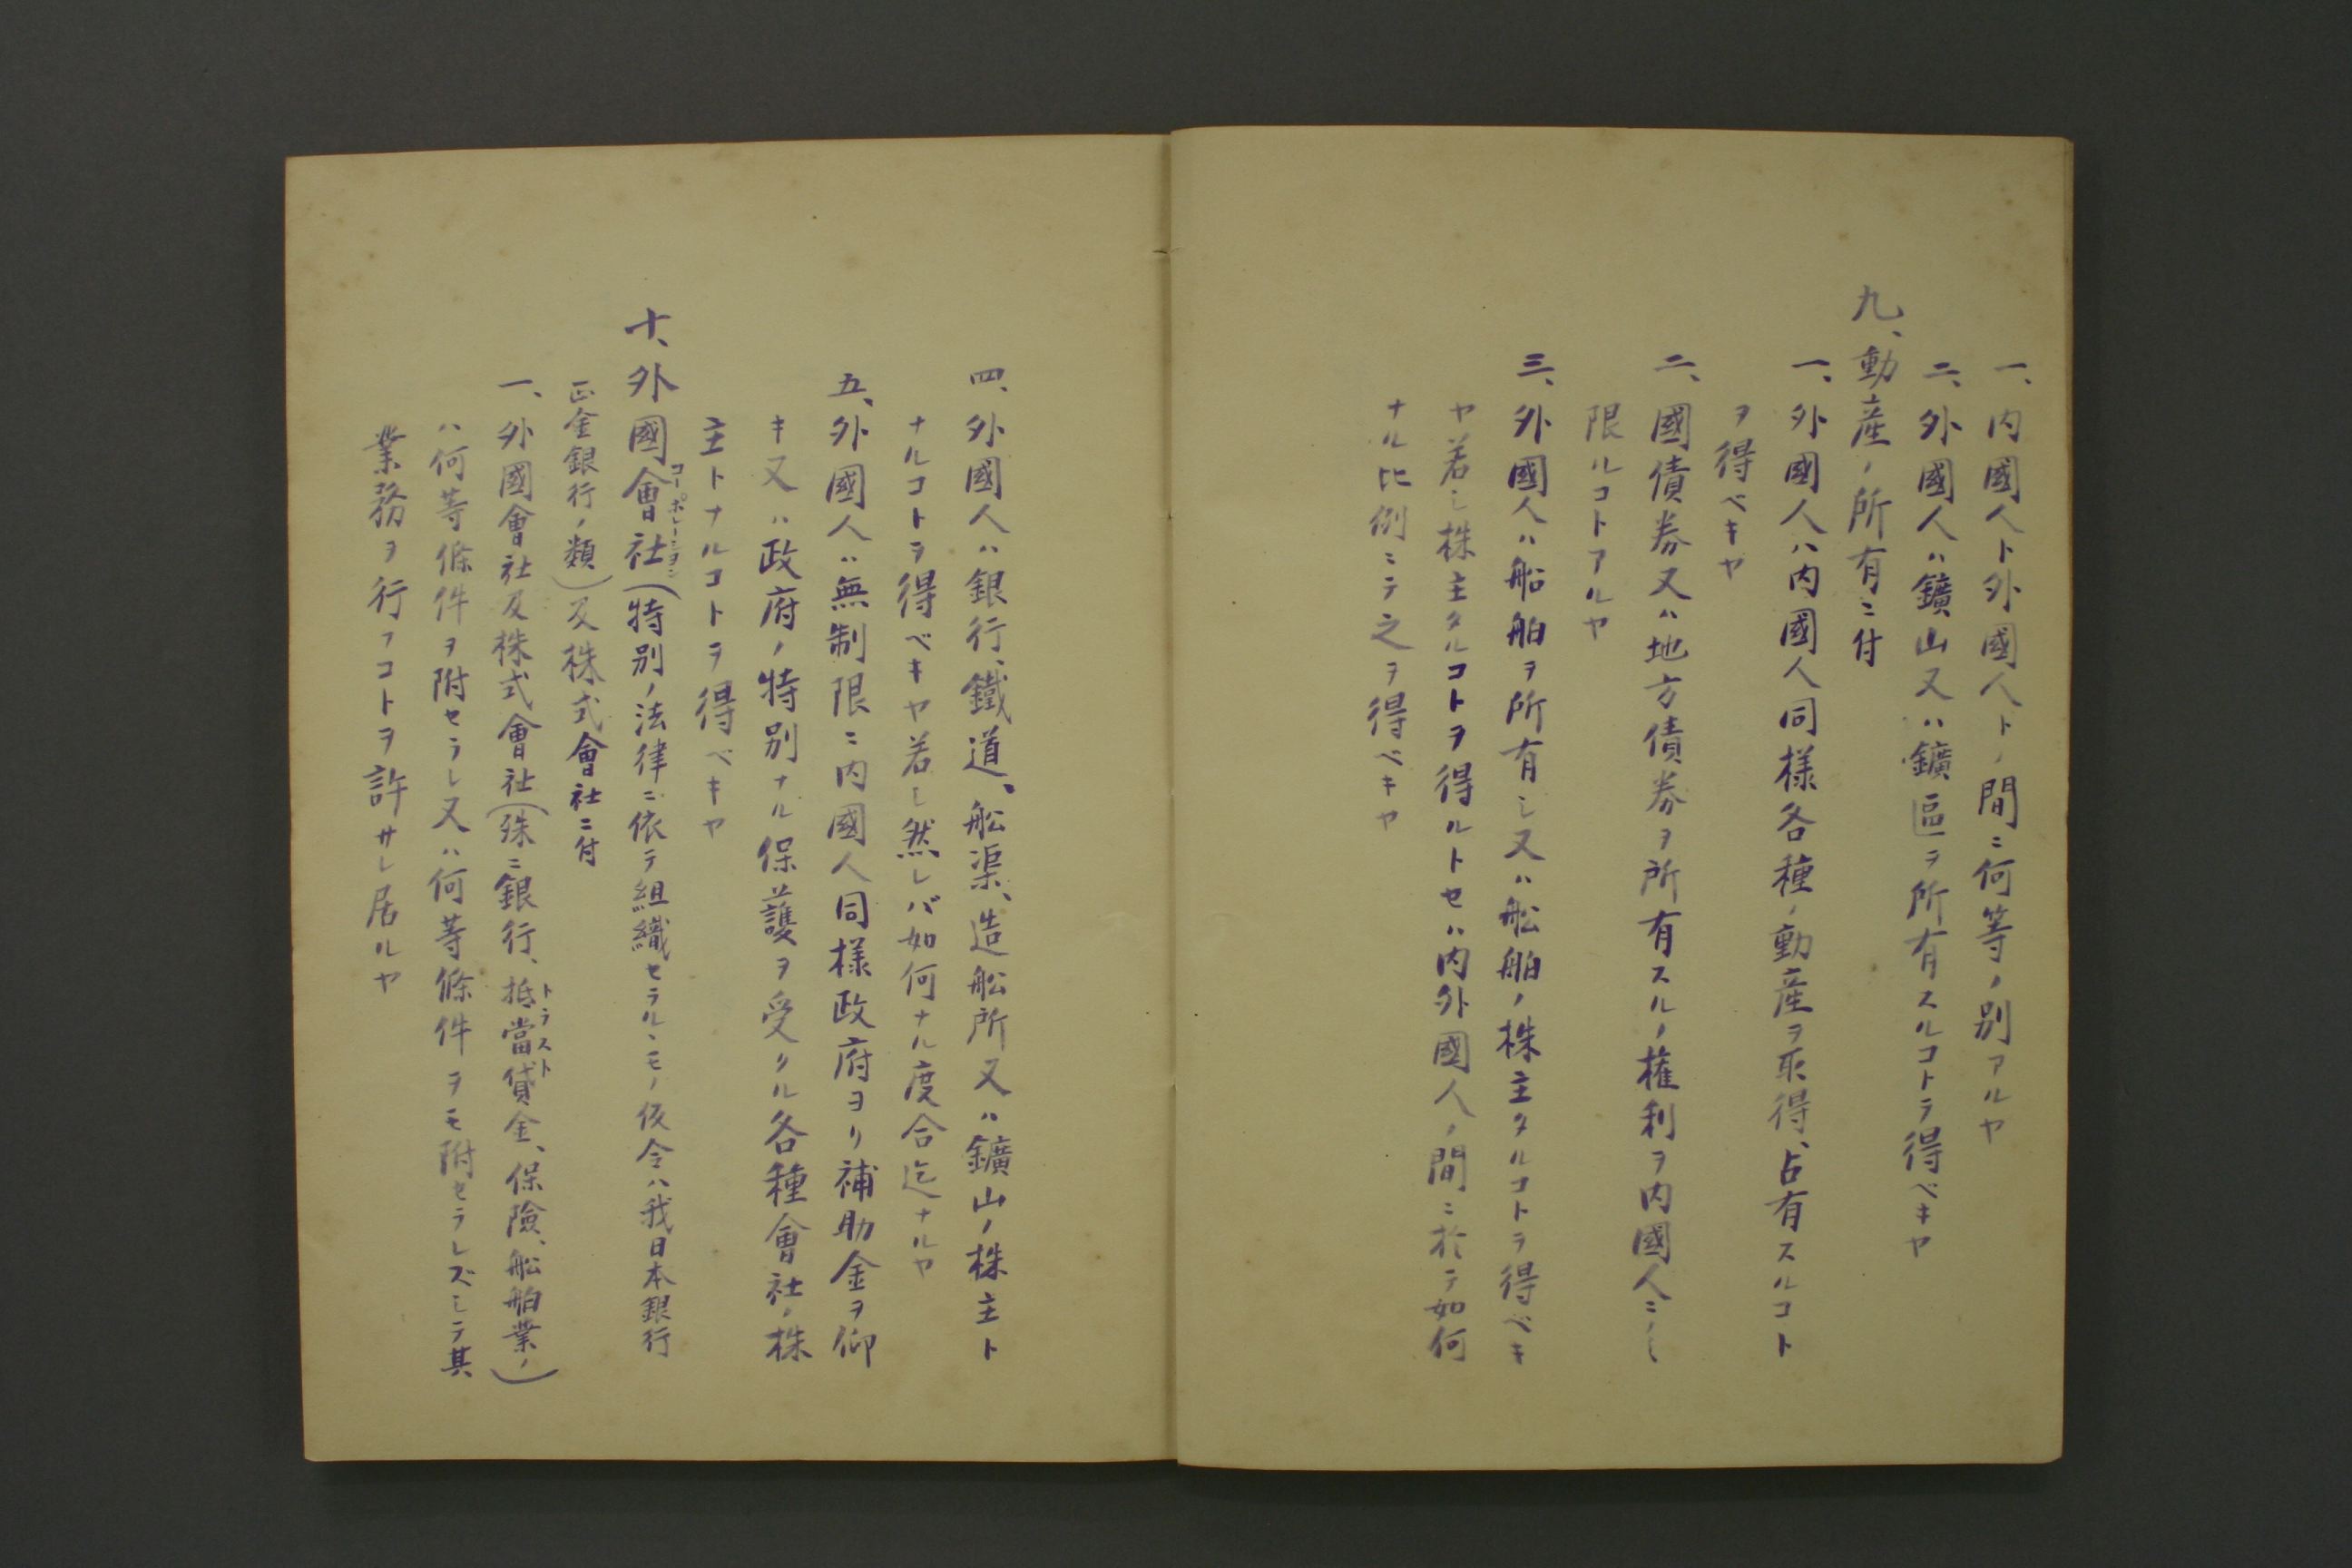 一、内國人ト外國人トノ間ニ何等ノ別アルヤ
二、外國人ハ鑛山又ハ鑛區ヲ所有スルコトヲ得ベキヤ
九、動産ノ所有ニ付
一、外國人ハ内國人同様各種ノ動産ヲ取得、占有スルコト
ヲ得ベキヤ
二、國債券又ハ地方債券ヲ所有スルノ権利ヲ内國人ニノミ
限ルコトアルヤ
三、外國人ハ船舶ヲ所有シ又ハ船舶ノ株主タルコトヲ得ベキ
ヤ若シ株主タルコトヲ得ルトセハ内外國人ノ間ニ於テ如何
ナル比例ニテ之ヲ得ベキヤ
四、外國人ハ銀行、鐵道、船渠、造船所又ハ鑛山ノ株主ト
ナルコトヲ得ベキヤ若シ然レバ如何ナル度合迄ナルヤ
五、外國人ハ無制限ニ内國人同様政府ヨリ補助金ヲ仰
キ又ハ政府ノ特別ナル保護ヲ受クル各種會社ノ株
主トナルコトヲ得ベキヤ
十、外國會社(特別ノ法律ニ依テ組織セラルヽモノ仮令ハ我日本銀行
コーポレーション
正金銀行ノ類)及株式會社ニ付
一、外國會社及株式會社(殊ニ銀行、抵當貸金、保險、船舶業ノ)
トラスト
ハ何等條件ヲ附セラレ又ハ何等條件ヲモ附セラレズシテ其
業務ヲ行フコトヲ許サレ居ルヤ